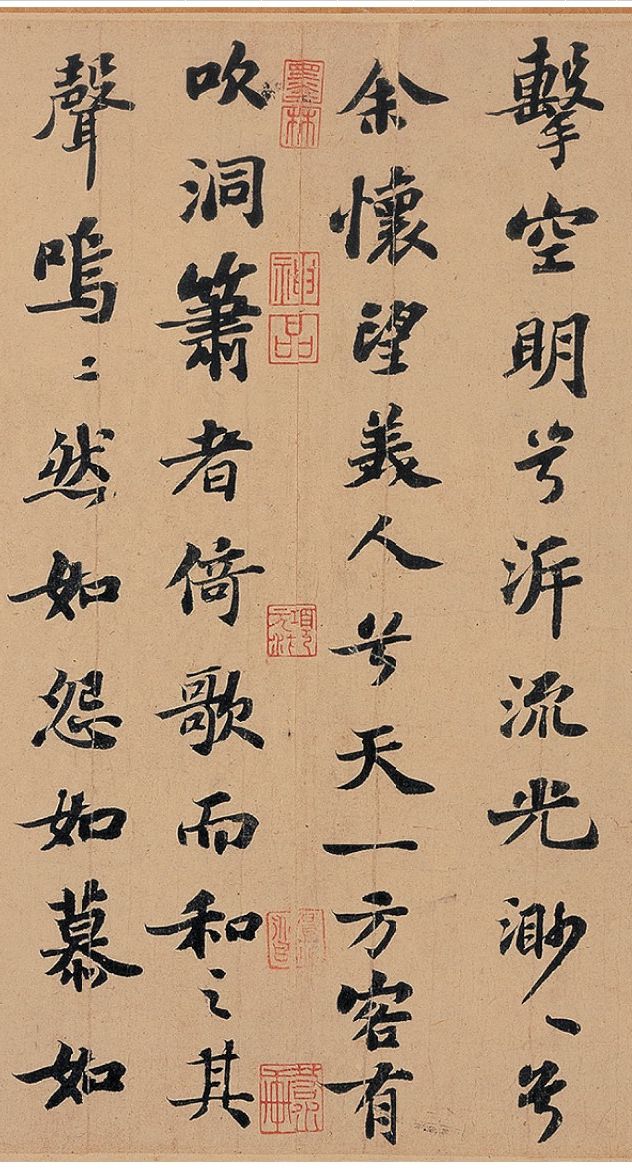 擊空明兮泝流光渺〻兮
余懷望美人兮天一方客有
吹洞簫者倚歌而和之其
聲嗚〻然如怨如慕如
墨林
神品